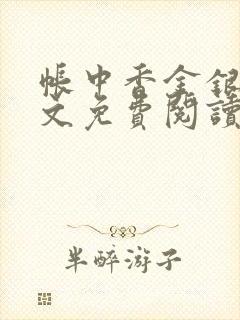 帳中香金銀
文免費閱讀
半醉游子